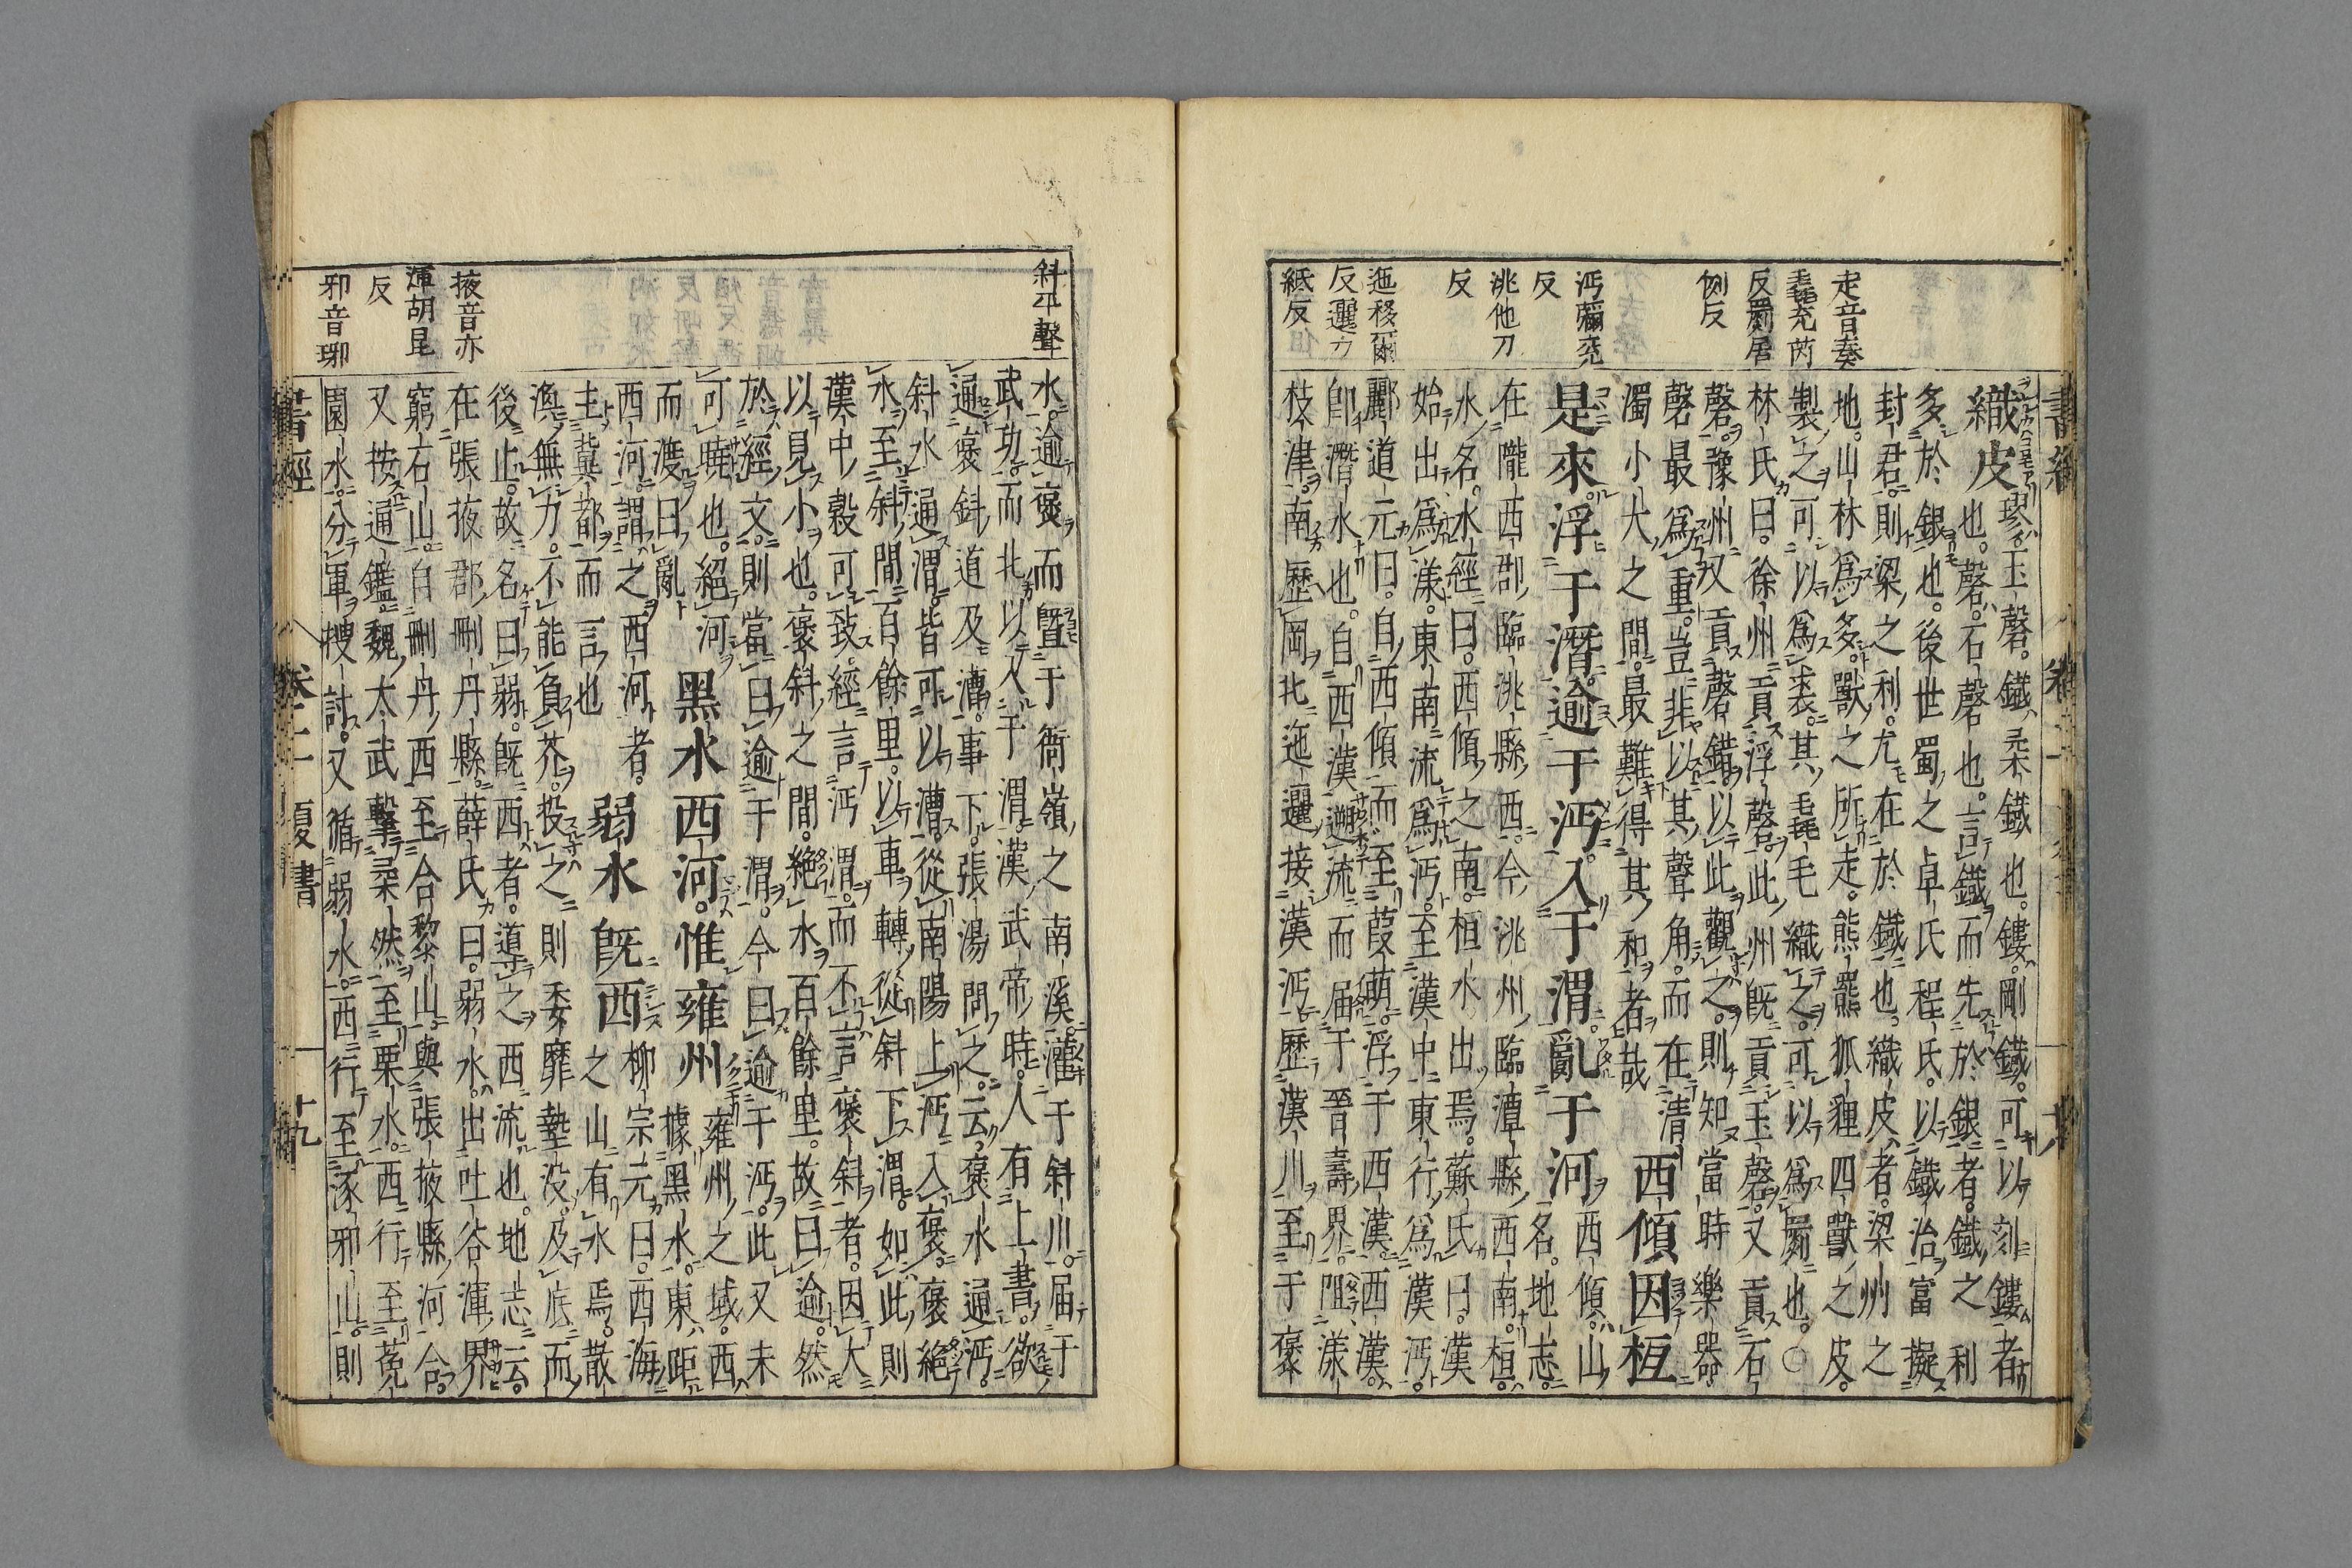 走音奏
毳充芮
反罽居
例反
沔彌兗
反
洮他刀
反
迤移爾
反邐力
紙反
織皮璆玉磬鐵柔鐵也鏤剛鐵可以刻鏤者
也磬石磬也言鐵而先於銀者鐵之利
多於銀也後世蜀之卓氏程氏以鐵冶富擬
封君則梁之利尤在於鐵也織皮者梁州之
地山林爲多獸之所走熊羆狐貍四獸之皮
製之可以爲裘其毳毛織之可以爲罽也○
林氏曰徐州貢浮磬此州旣貢玉磬又貢石
磬豫州又貢磬錯以此觀之則知當時樂器
磬最爲重豈非以其聲角而在清
濁小大之間最難得其和者哉西傾因桓
是來浮于潛逾于沔入于渭亂于河西傾山
在隴西郡臨洮縣西今洮州臨潭縣西南桓
水名水經曰西傾之南桓水出焉蘇氏曰漢
始出爲漾東南流爲沔至漢中東行爲漢沔
酈道元曰自西傾而至葭萌浮于西漢西漢
卽潛水也自西漢遡流而届于晉壽界阻漾
枝津南歷岡北迤邐接漢沔歷漢川至于褒
斜平聲
掖音亦
渾胡昆
反
邪音琊
水逾褒而曁于衙嶺之南溪灌于斜川届于
武功而北以入于渭漢武帝時人有上書欲
通褒斜道及漕事下張湯問之云褒水通沔
斜水通渭皆可以漕從南陽上沔入褒褒絶
水至斜間百餘里以車轉從斜下渭如此則
漢中穀可致經言沔渭而不言褒斜者因大
以見小也褒斜之間絶水百餘里故曰逾然
於經文則當曰逾于渭今曰逾于沔此又未
可曉也絕河而渡曰亂黑水西河惟雍州雍州之域西
據黑水東距
西河謂之西河者
主冀都而言也弱水旣西柳宗元曰西海
之山有水焉散
渙無力不能負芥投之則委靡墊没及底而
後止故名曰弱旣西者導之西流也地志云
在張掖郡刪丹縣薛氏曰弱水出吐谷渾界
窮石山自刪丹西至合黎山與張掖縣河合
又按通鑑魏太武擊柔然至栗水西行至菟
園水分軍搜討又循弱水西行至涿邪山則
書經 卷二 夏書 十九